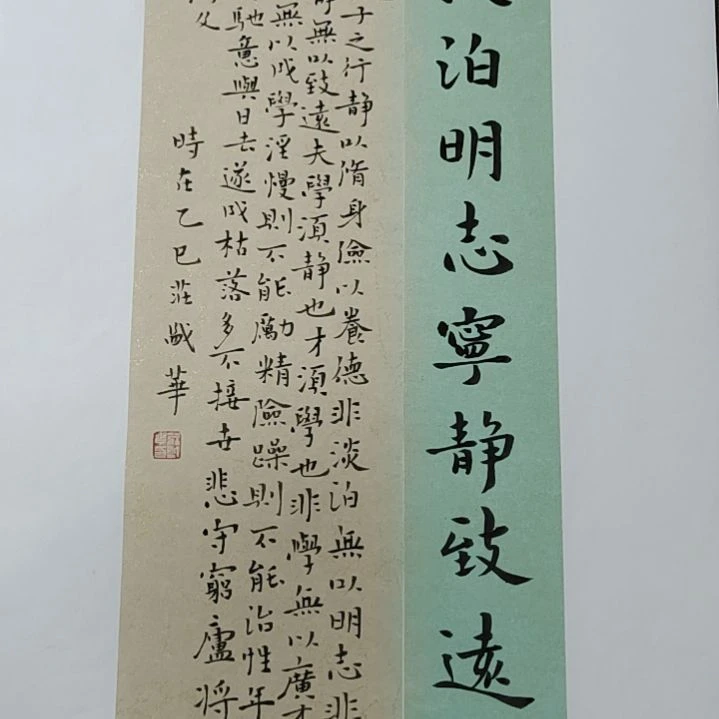 泊明志寧静致遠
子之行静以脩身險以養德非淡泊無以明志非
静無以致遠夫學須静也才須學也非學無以廣才
無以成學淫慢則不能勵精險躁則不能治性年
馳意與日去遂成枯落多不接世悲守窮廬將
時在乙巳莊盛華